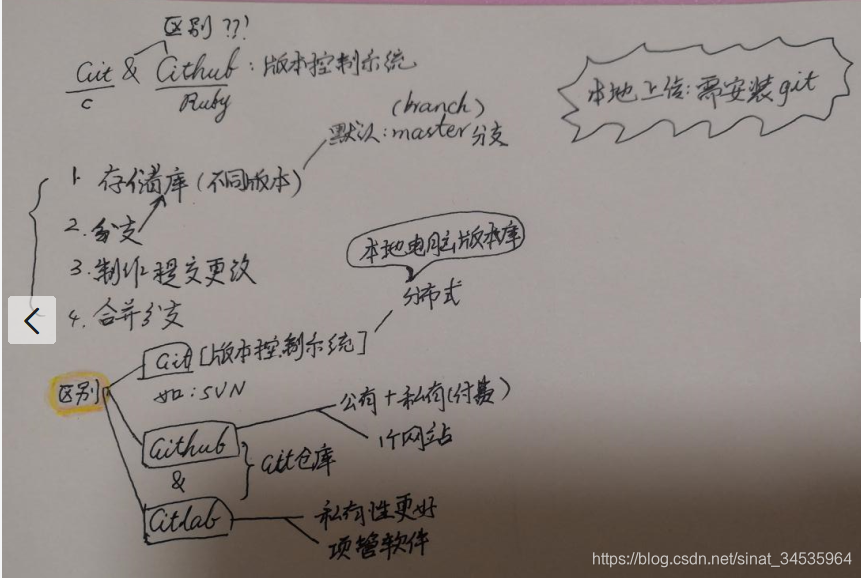 区别??!
Git & Github：版本控制系统
C Ruby
本地上传：需安装git
(branch)
默认：master分支
1. 存储库(不同版本)
2. 分支
3. 制作提交更改
4. 合并分支
本地电脑上版本库
分布式
区别
Git [版本控制系统]
如：SVN
Github
公有+私有(付费)
1个网站
&
Git仓库
Gitlab
私有性更好
项管软件
https://blog.csdn.net/sinat_34535964